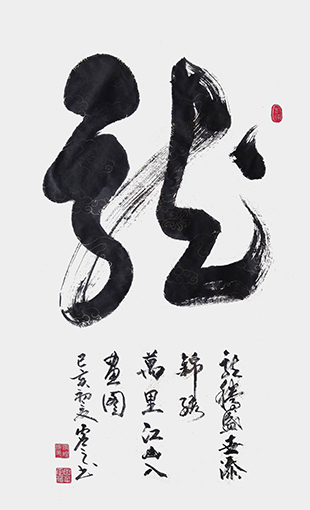 龍
龍騰盛世添
錦綉
萬里江山入
畫图
己亥初夏